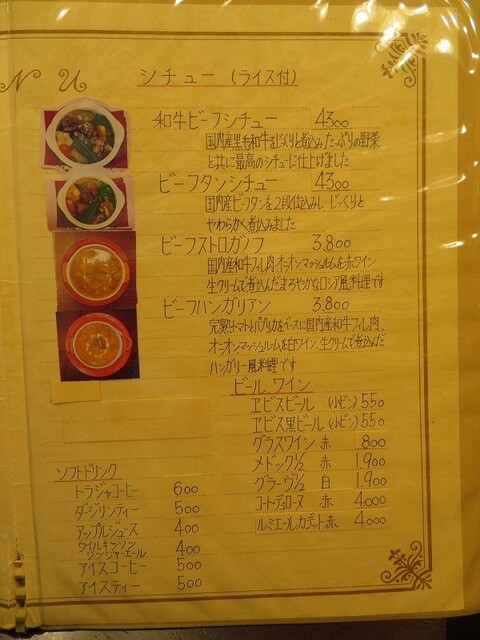 NU
シチュー (ライス付)
和牛ビーフシチュー 4300
国内産黒毛和牛をじっくり煮込みたっぷりの野菜
と共に最高のシチューに仕上げました
ビーフタンシチュー 4300
国内産ビーフタンを2段仕込みし じっくりと
やわらかく煮込みました
ビーフストロガノフ 3.800
国内産和牛フィレ肉オニオンマッシュルームを赤ワイン
生クリームで煮込んだまろやかなロシア風料理です
ビーフハンガリアン 3.800
完熟トマトとパプリカをベースに国内産和牛フィレ肉、
オニオンマッシュルームを白ワイン、生クリームで煮込んだ
ハンガリー風料理です
ビール、ワイン
ヱビスビール (小ビン) 550
ヱビス黒ビール (小ビン) 550
グラスワイン 赤 800
メドック1/2 赤 1.900
グラーヴ1/2 白 1.900
コートデュローヌ 赤 4.000
ルミエールカデット 赤 4.000
ソフトドリンク
トラジャコーヒー 600
ダージリンティー 500
アップルジュース 400
ウイルキンソン
ジンジャーエール 400
アイスコーヒー 500
アイスティー 500